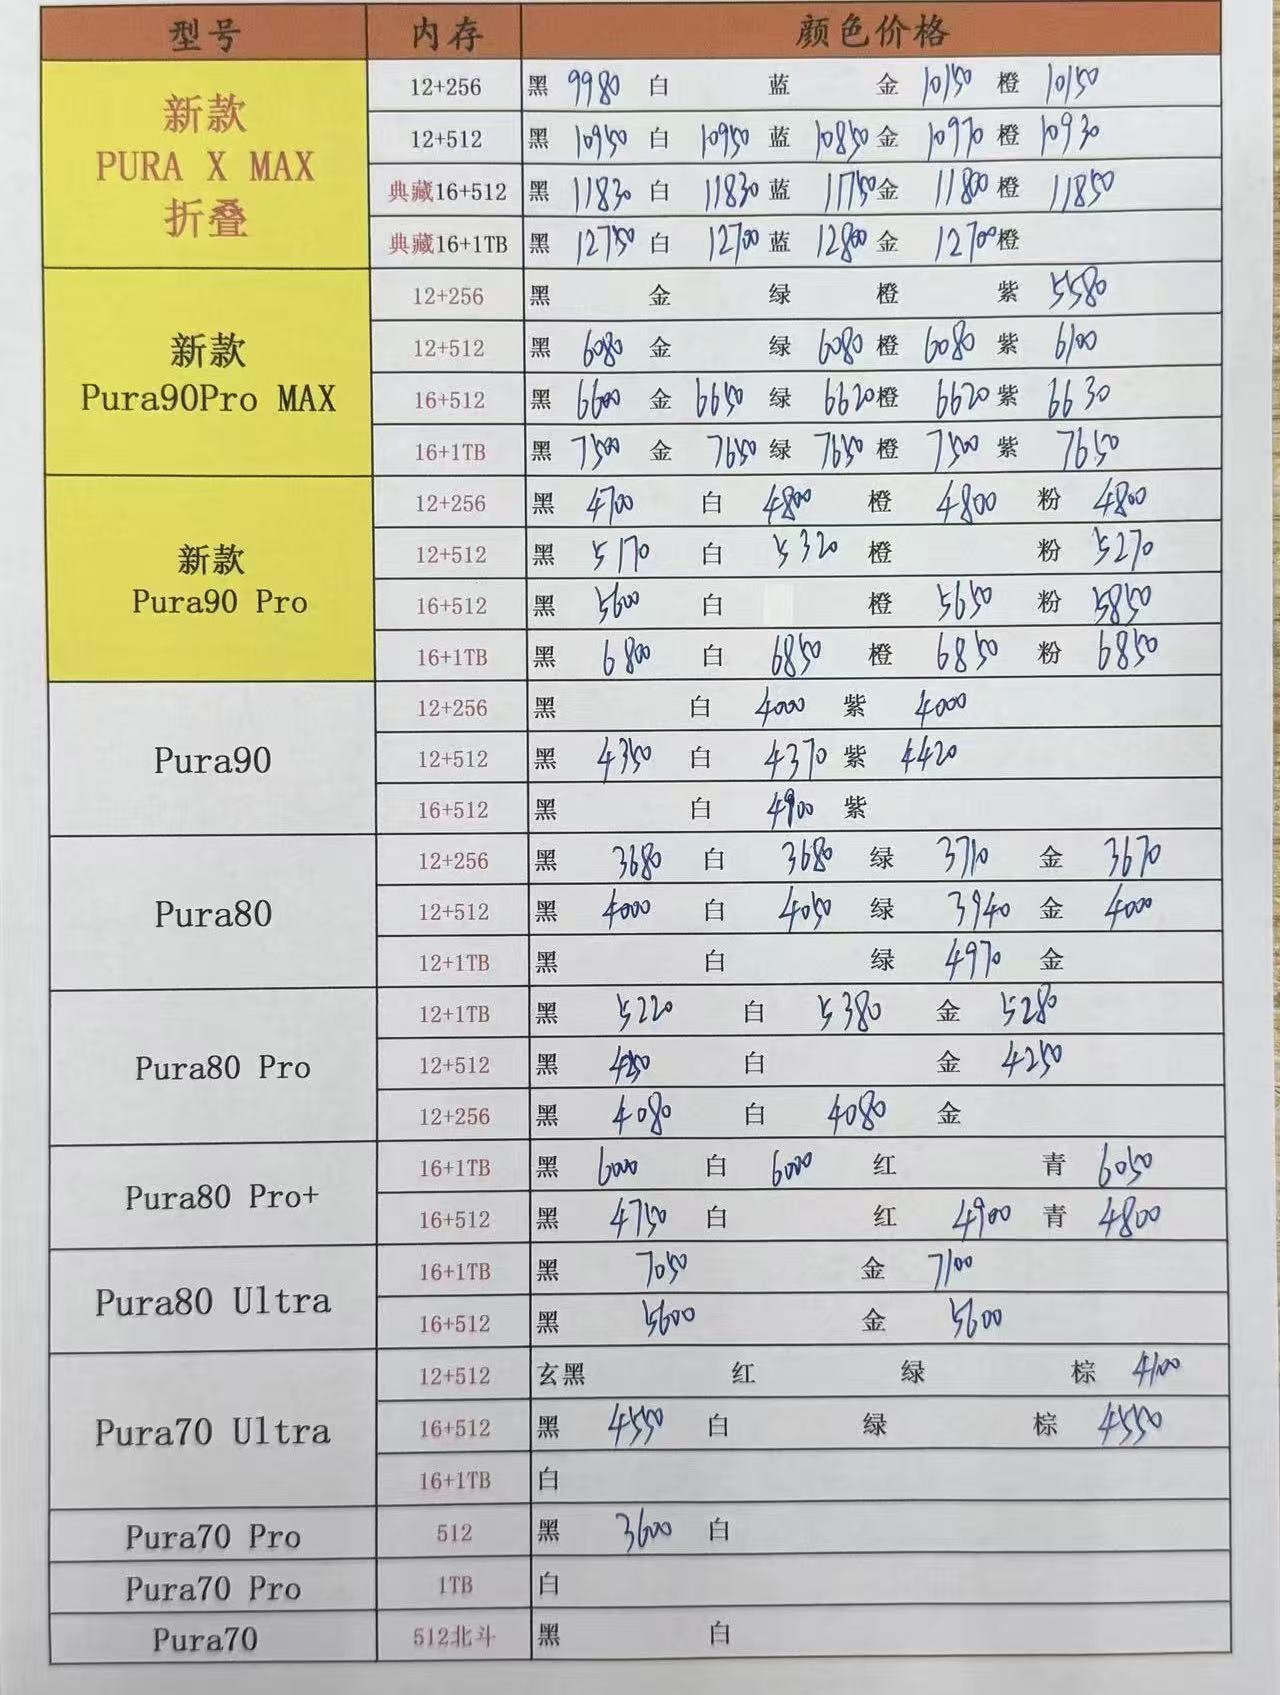 型号 内存 颜色价格
新款 PURA X MAX 折叠
12+256 黑 9980 白 蓝 金 10150 橙 10150
12+512 黑 10950 白 10950 蓝 10850 金 10970 橙 10930
典藏16+512 黑 11830 白 11830 蓝 11750 金 11800 橙 11850
典藏16+1TB 黑 12750 白 12700 蓝 12800 金 12700 橙
新款 Pura90Pro MAX
12+256 黑 金 绿 橙 紫 5580
12+512 黑 6080 金 绿 6080 橙 6080 紫 6100
16+512 黑 6600 金 6650 绿 6620 橙 6620 紫 6630
16+1TB 黑 7500 金 7650 绿 7650 橙 7500 紫 7650
新款 Pura90 Pro
12+256 黑 4700 白 4800 橙 4800 粉 4800
12+512 黑 5170 白 5320 橙 粉 5270
16+512 黑 5600 白 橙 5650 粉 5850
16+1TB 黑 6800 白 6850 橙 6850 粉 6850
Pura90
12+256 黑 白 4000 紫 4000
12+512 黑 4350 白 4370 紫 4420
16+512 黑 白 4900 紫
Pura80
12+256 黑 3680 白 3680 绿 3710 金 3670
12+512 黑 4000 白 4050 绿 3940 金 4000
12+1TB 黑 白 绿 4970 金
Pura80 Pro
12+1TB 黑 5220 白 5380 金 5280
12+512 黑 白 金 4250
12+256 黑 4080 白 4080 金
Pura80 Pro+
16+1TB 黑 6000 白 6000 红 青 6050
16+512 黑 4750 白 红 4900 青 4800
Pura80 Ultra
16+1TB 黑 7050 金 7100
16+512 黑 5600 金 5600
Pura70 Ultra
12+512 玄黑 红 绿 棕 4100
16+512 黑 4550 白 绿 棕 4550
16+1TB 白
Pura70 Pro 512 黑 3600 白
Pura70 Pro 1TB 白
Pura70 512北斗 黑 白